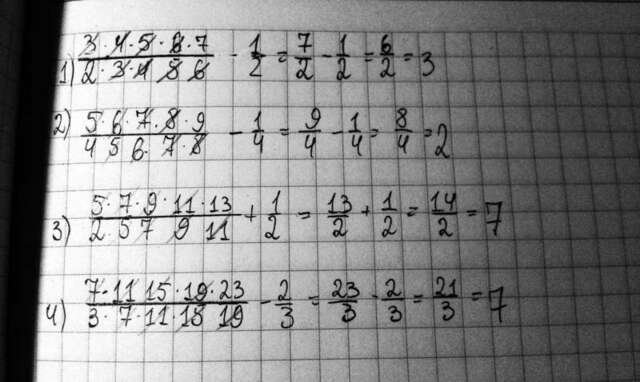 1) 3·4·5·6·7/2·3·4 5 6 - 1/2 = 7/2 - 1/2 = 6/2 = 3
2) 5·6·7·8·9/4 5 6·7·8 - 1/4 = 9/4 - 1/4 = 8/4 = 2
3) 5·7·9·11·13/2 5 7 9 11 + 1/2 = 13/2 + 1/2 = 14/2 = 7
4) 7·11 15·19·23/3·7·11 15 19 - 2/3 = 23/3 - 2/3 = 21/3 = 7